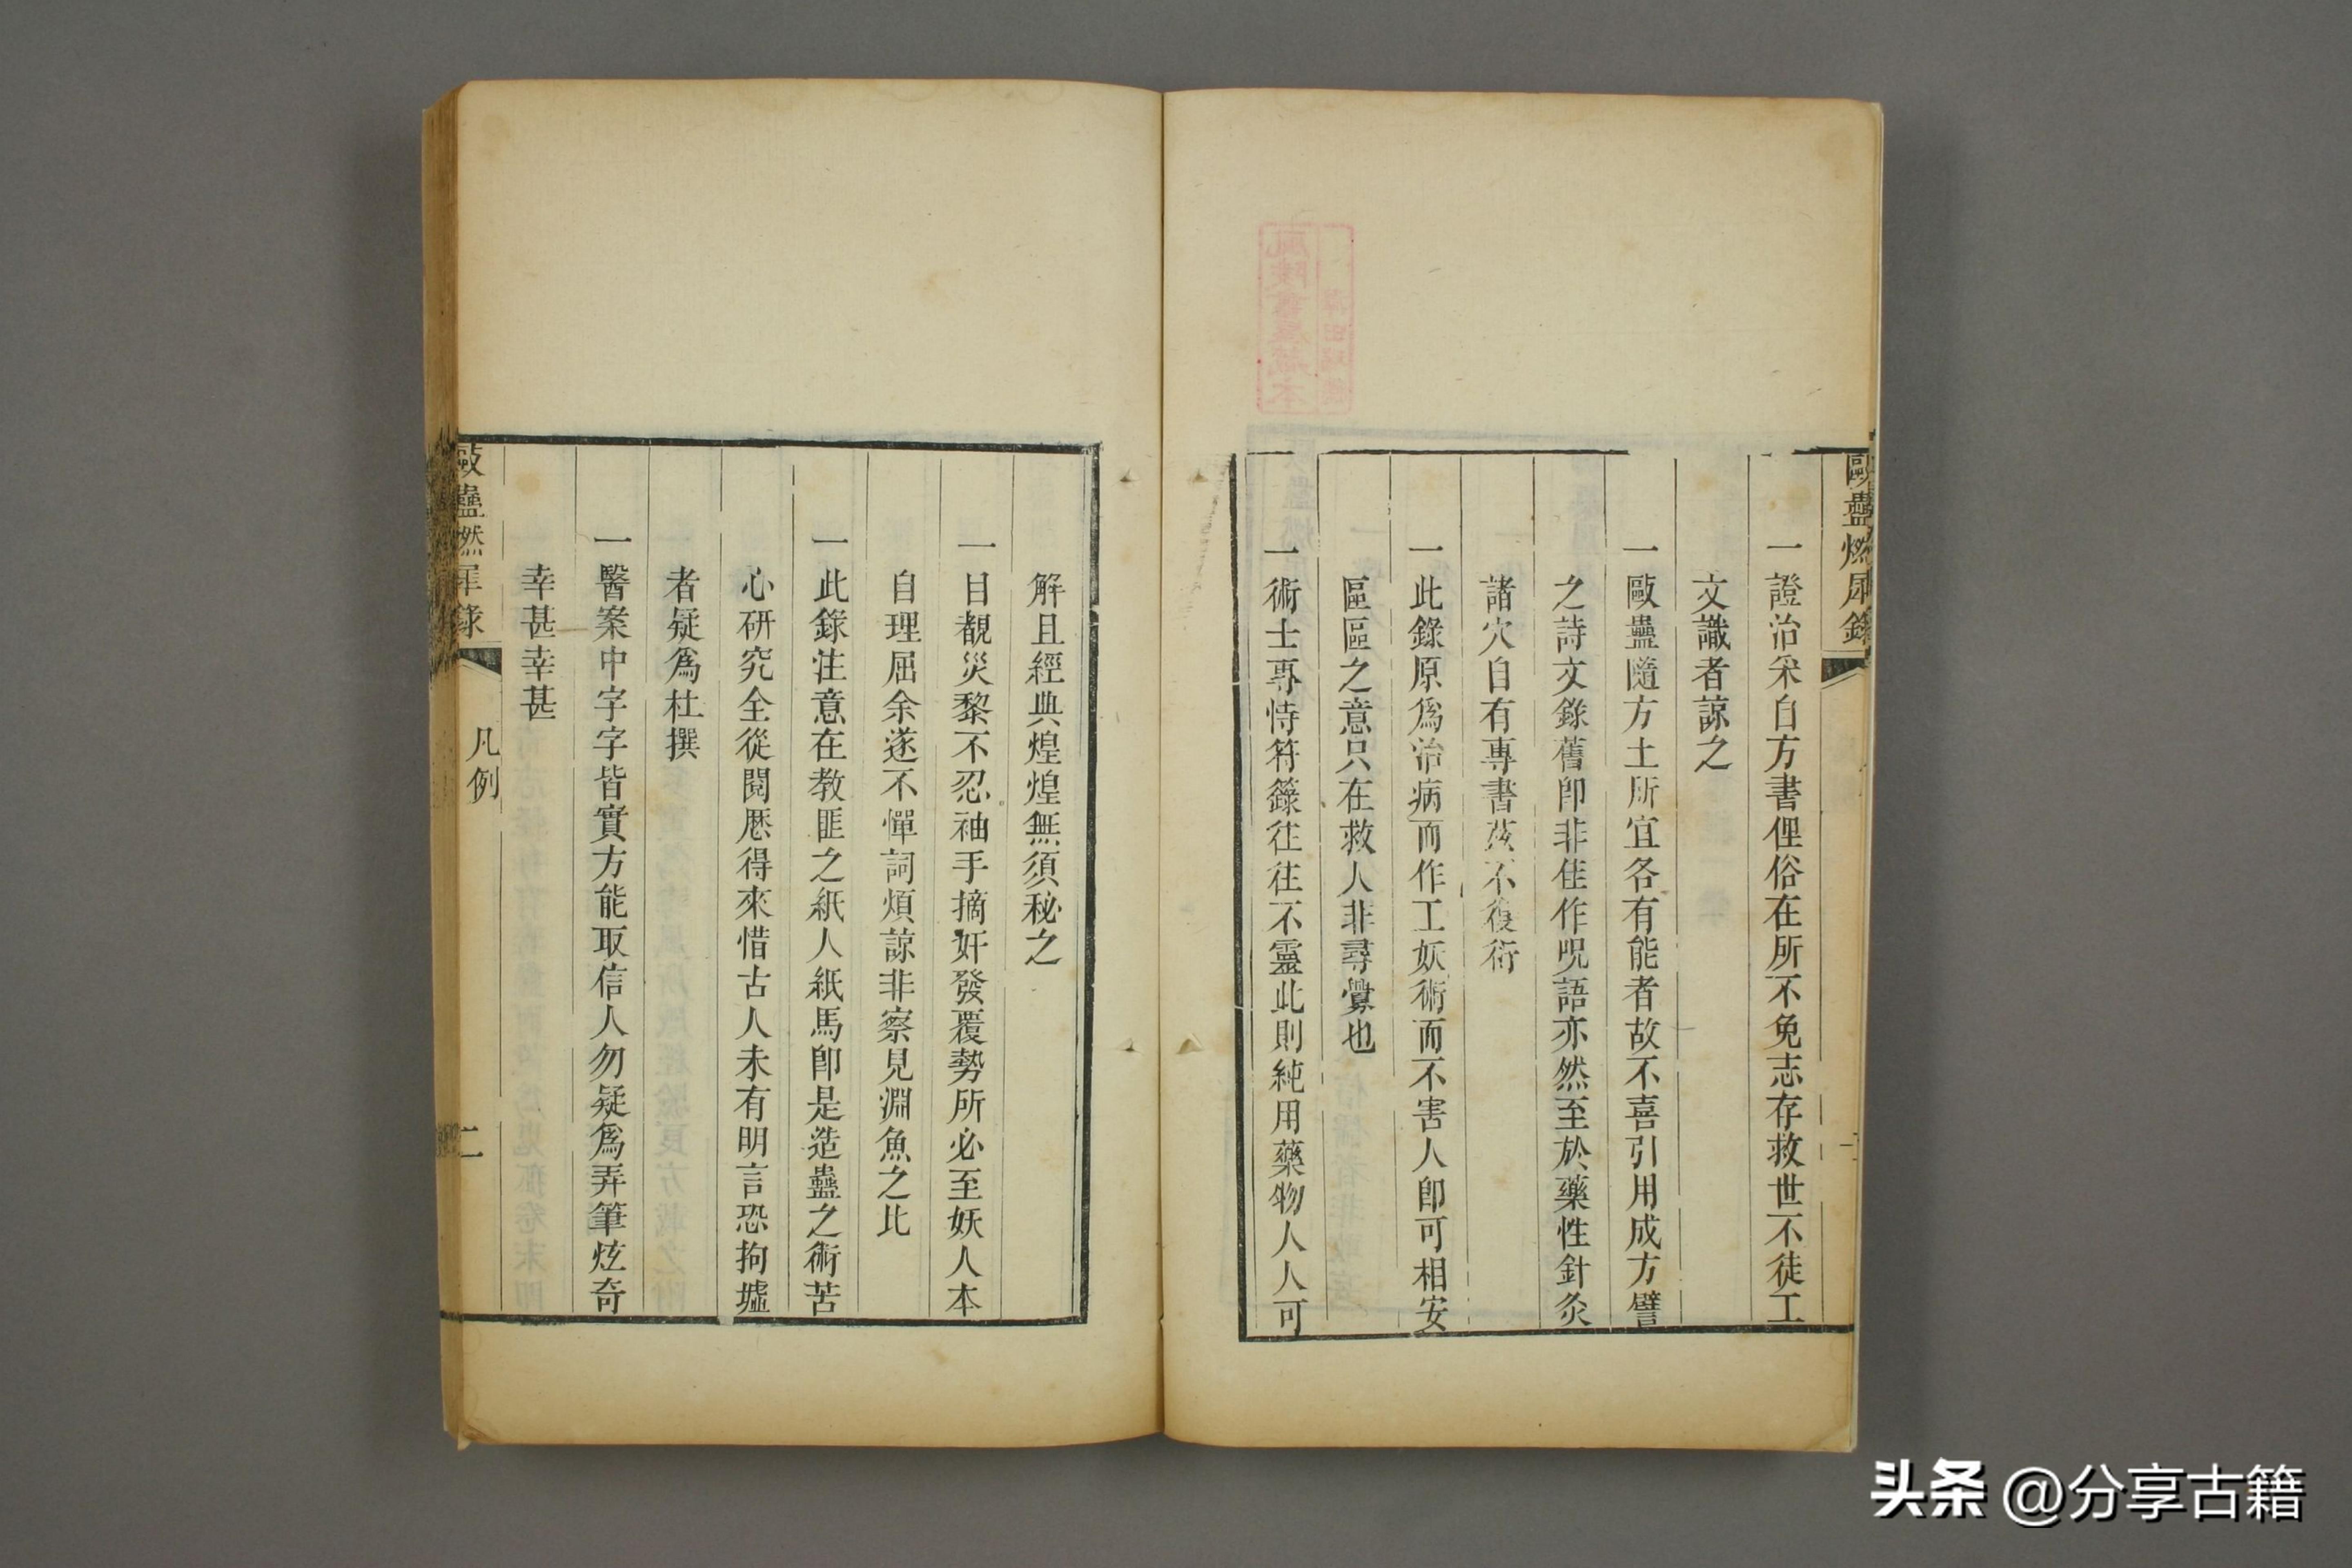 歐蠱燃犀錄
一證治采自方書俚俗在所不免志存救世不徒工
文識者諒之
一歐蠱隨方土所宜各有能者故不喜引用成方譬
之詩文錄舊卽非佳作呪語亦然至於藥性針灸
諸穴自有專書茲不復衍
一此錄原爲治病而作工妖術而不害人卽可相安
區區之意只在救人非尋釁也
一術士專恃符籙往往不靈此則純用藥物人人可
解且經典煌煌無須秘之
一目覩災黎不忍袖手摘奸發覆勢所必至妖人本
自理屈余遂不憚詞煩諒非察見淵魚之比
一此錄注意在教匪之紙人紙馬卽是造蠱之術苦
心研究全從閱歷得來惜古人未有明言恐拘墟
者疑爲杜撰
一醫案中字字皆實方能取信人勿疑爲弄筆炫奇
幸甚幸甚
歐蠱燃犀錄
凡例
二
头条 @分享古籍